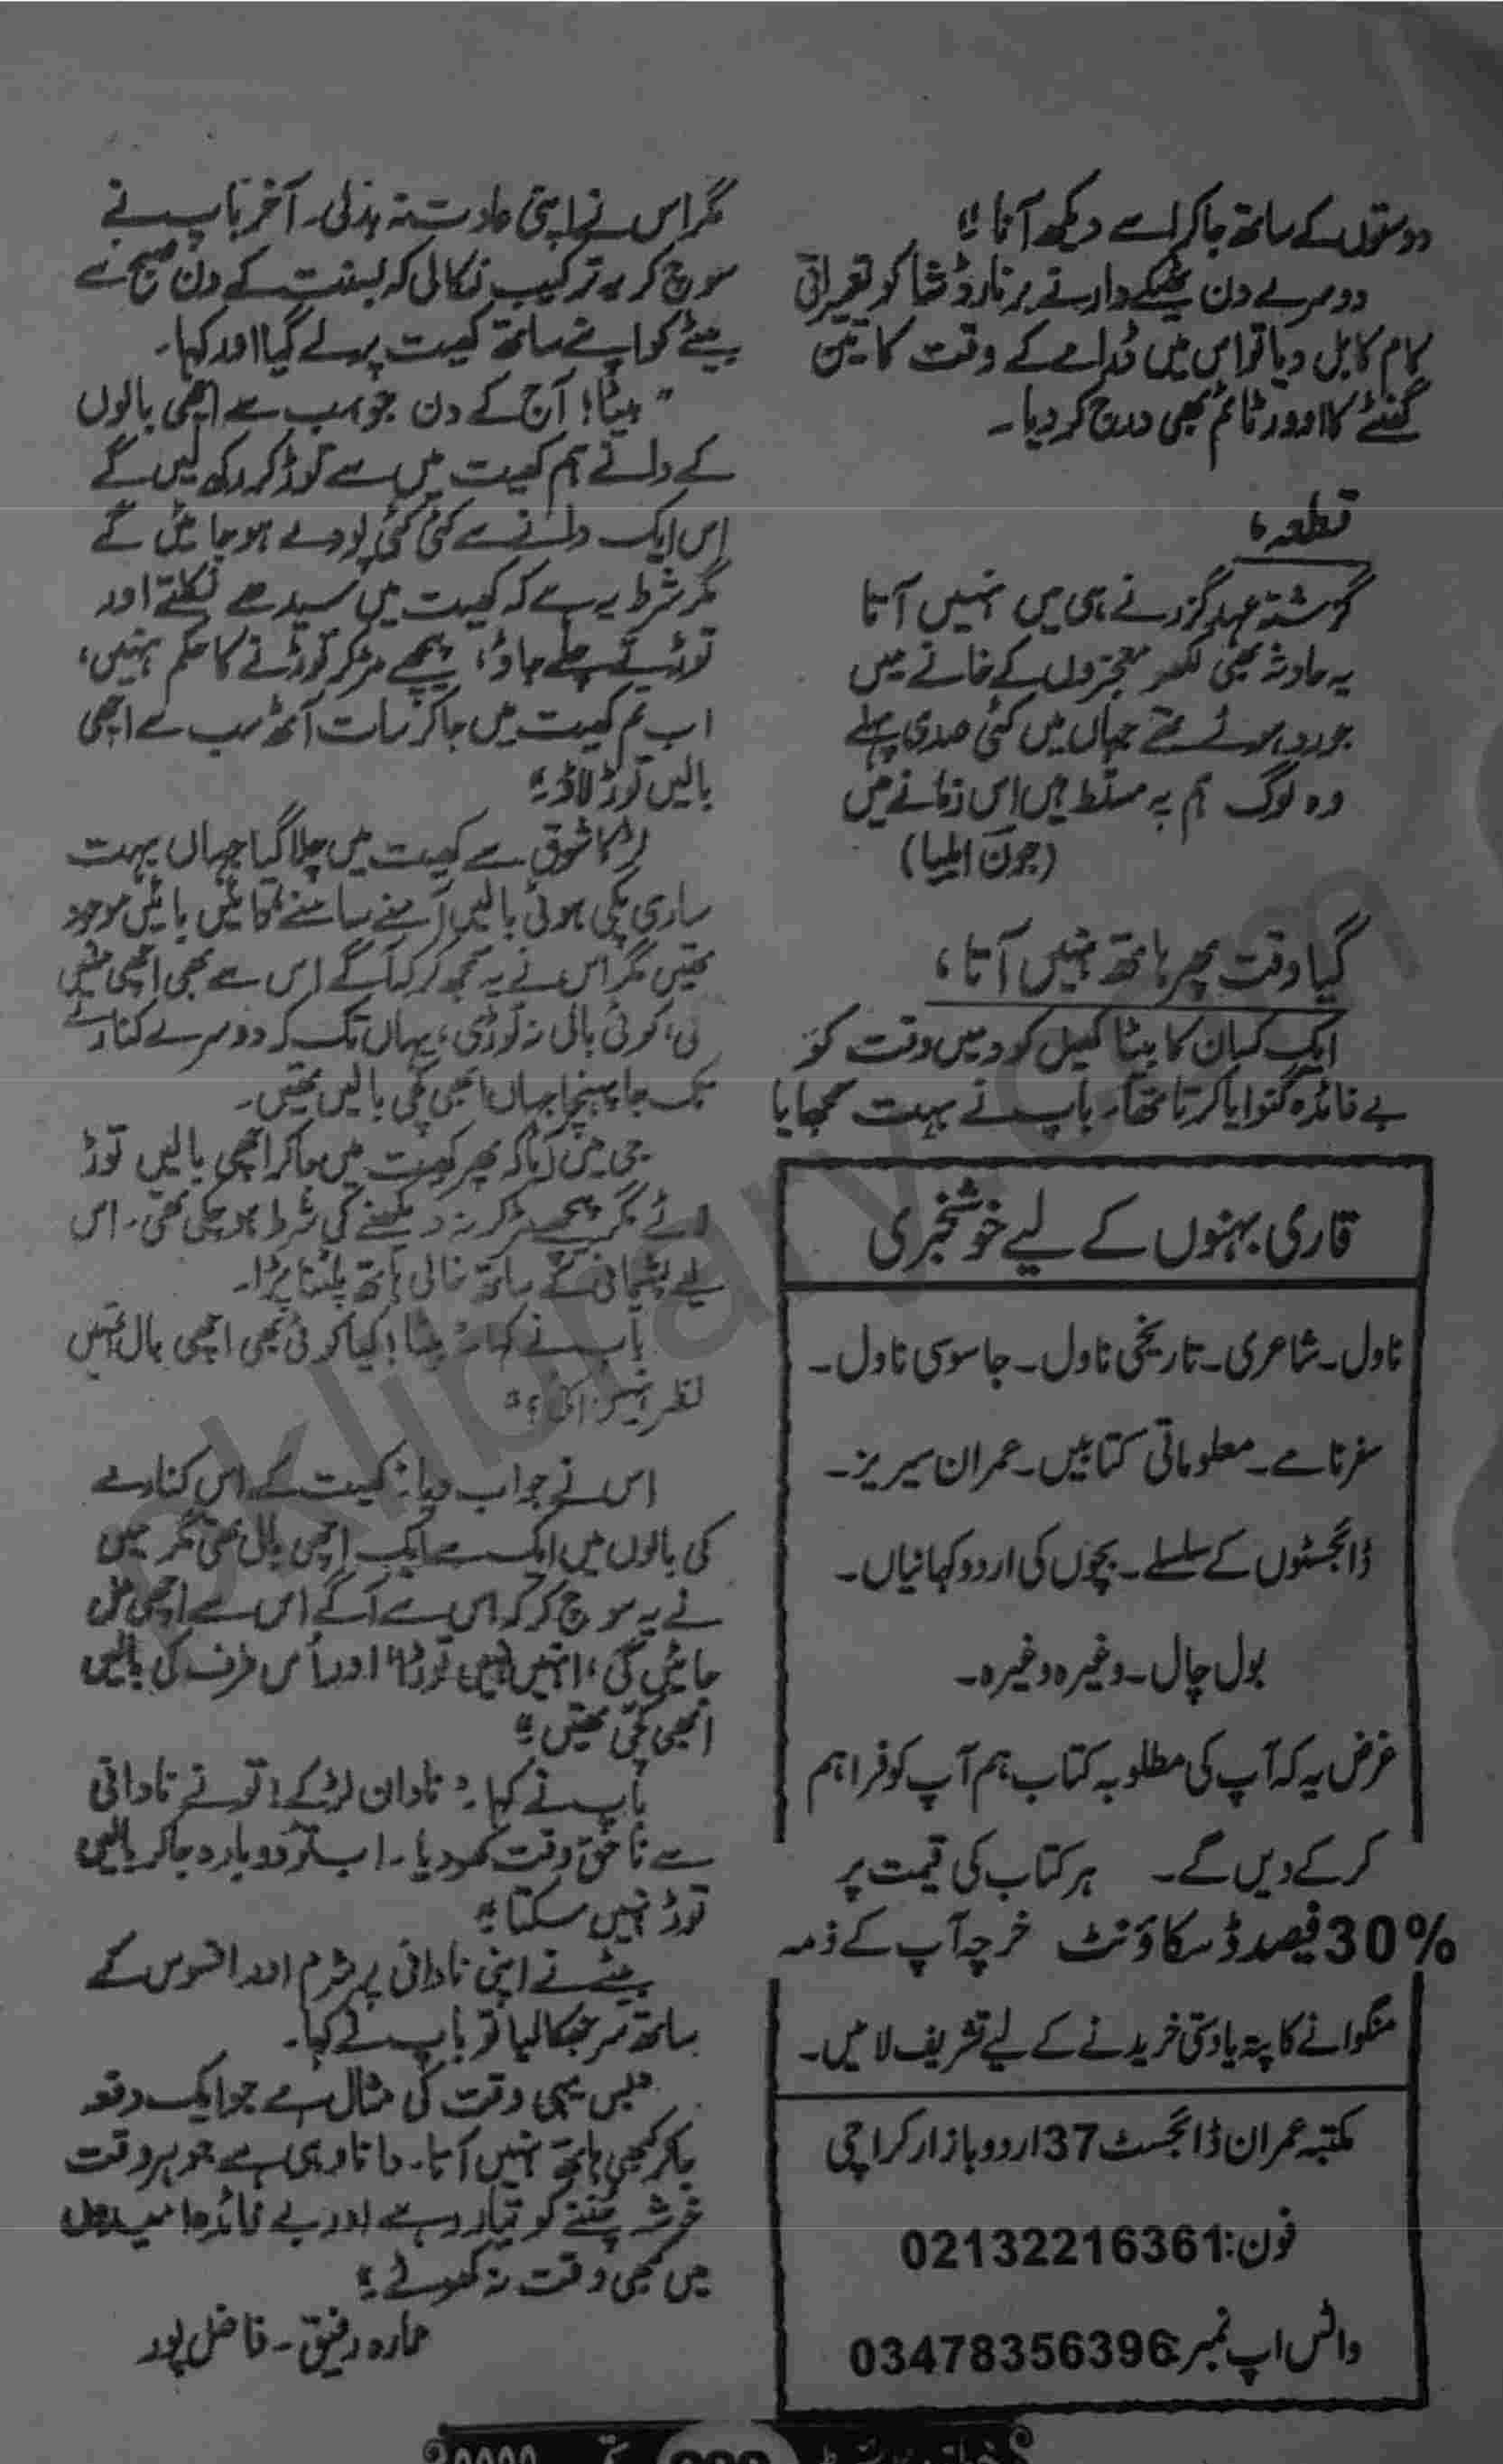 دوستوں کے ساتھ جا کر اسے دیکھ آنا۔"
دوسرے دن ٹھیکے دار نے برنارڈ شا کو تعمیراتی
کام کا بل دیا تو اس میں ڈرامے کے وقت کا تین
گھنٹے کا اوور ٹائم بھی درج کر دیا۔
قطعہ،
گزشتہ عہد گزرنے ہی میں نہیں آتا
یہ حادثہ بھی لکھو معجزوں کے خانے میں
جو رد ہوئے تھے جہاں میں کئی صدی پہلے
وہ لوگ ہم پہ مسلط ہیں اس زمانے میں
(جون ایلیا)
گیا وقت پھر ہاتھ نہیں آتا،
ایک کسان کا بیٹا کھیل کود میں وقت کو
بے فائدہ گنوایا کرتا تھا۔ باپ نے بہت سمجھایا
مگر اس نے اپنی عادت نہ بدلی۔ آخر باپ نے
سوچ کر یہ ترکیب نکالی کہ بسنت کے دن صبح سے
بیٹے کو اپنے ساتھ کھیت پر لے گیا اور کہا۔
"بیٹا! آج کے دن جو سب سے اچھی بالوں
کے دانے ہم کھیت میں سے توڑ کر رکھ لیں گے
اس ایک دانے سے کئی کئی پودے ہو جائیں گے
مگر شرط یہ ہے کہ کھیت میں سیدھے نکلتے اور
توڑتے چلے جاؤ، پیچھے مڑ کر توڑنے کا حکم نہیں،
اب تم کھیت میں جا کر سات آٹھ سب سے اچھی
بالیں توڑ لاؤ۔"
لڑکا شوق سے کھیت میں چلا گیا جہاں بہت
ساری پکی ہوئی بالیں آمنے سامنے دائیں بائیں موجود
تھیں مگر اس نے یہ سمجھ کر کہ آگے اس سے بھی اچھی ملیں
گی، کوئی بالی نہ توڑی، یہاں تک کہ دوسرے کنارے
تک جا پہنچا جہاں ابھی کچی بالیں تھیں۔
جی میں آیا کہ پھر کھیت میں جا کر اچھی بالیں توڑ
لائے مگر پیچھے مڑ کر نہ دیکھنے کی شرط ہو چکی تھی۔ اس
لیے پشیمانی کے ساتھ خالی ہاتھ پلٹنا پڑا۔
باپ نے کہا۔ "بیٹا! کیا کوئی بھی اچھی بال تمہیں
نظر نہیں آئی؟"
اس نے جواب دیا۔ "کھیت کے اس کنارے
کی بالوں میں ایک سے ایک اچھی بال تھی مگر میں
نے یہ سوچ کر کہ اس سے آگے اس سے اچھی مل
جائیں گی، انہیں نہیں توڑا اور اس طرف کی بالیں
ابھی کچی تھیں۔"
باپ نے کہا۔ "نادان لڑکے! تو نے نادانی
سے ناحق وقت کھو دیا۔ اب تو دوبارہ جا کر بالیں
توڑ نہیں سکتا۔"
بیٹے نے اپنی نادانی پر شرم اور افسوس کے
ساتھ سر جھکا لیا تو باپ نے کہا۔
"بس یہی وقت کی مثال ہے جو ایک دفعہ
جا کر کبھی ہاتھ نہیں آتا۔ دانا وہی ہے جو ہر وقت
خوشہ چننے کو تیار رہے اور بے فائدہ امیدوں
میں کبھی وقت نہ کھوئے۔"
عمارہ رفیق۔ فاضل پور
قاری بہنوں کے لیے خوشخبری
ناول۔ شاعری۔ تاریخی ناول۔ جاسوسی ناول۔
سفرنامے۔ معلوماتی کتابیں۔ عمران سیریز۔
ڈائجسٹوں کے سلسلے۔ بچوں کی اردو کہانیاں۔
بول چال۔ وغیرہ وغیرہ۔
غرض یہ کہ آپ کی مطلوبہ کتاب ہم آپ کو فراہم
کر کے دیں گے۔ ہر کتاب کی قیمت پر
30% فیصد ڈسکاؤنٹ خرچہ آپ کے ذمہ
منگوانے کا پتہ یا دستی خریدنے کے لیے تشریف لائیں۔
مکتبہ عمران ڈائجسٹ 37 اردو بازار کراچی
فون: 02132216361
واٹس اپ نمبر 03478356396